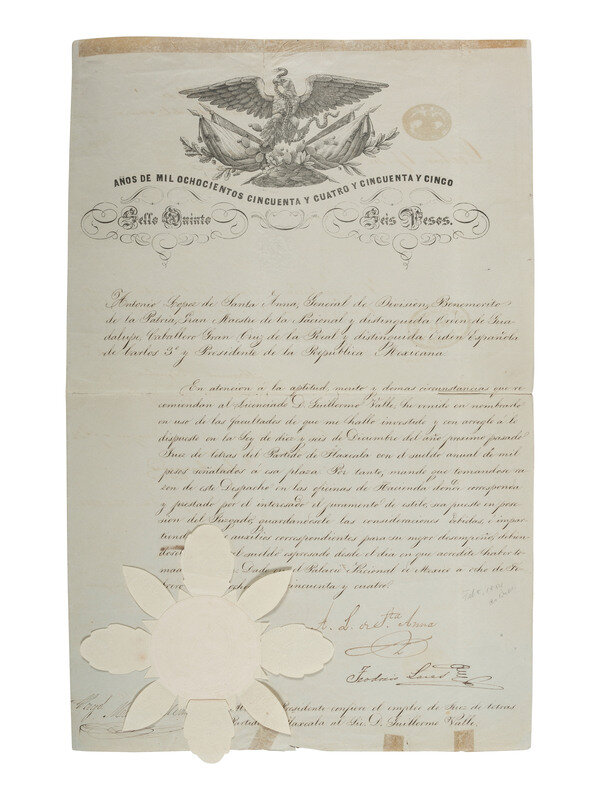 AÑOS DE MIL OCHOCIENTOS CINCUENTA Y CUATRO Y CINCUENTA Y CINCO
Sello Quinto Seis Pesos.
Antonio Lopez de Santa Anna, General de Division, Benemerito
de la Patria, Gran Maestre de la Nacional y distinguida Orden de Gua-
dalupe, Caballero Gran Cruz de la Real y distinguida Orden Española
de Carlos 3º y Presidente de la Republica Mexicana
En atencion a la aptitud, merito y demas circunstancias que re-
comiendan al Licenciado D. Guillermo Valle, he venido en nombrarlo
en uso de las facultades de que me hallo investido y con arreglo a lo
dispuesto en la Ley de diez y seis de Diciembre del año proximo pasado
Juez de letras del Partido de Tlaxcala con el sueldo anual de mil
pesos señalados a esa plaza Por tanto, mando que tomandose ra-
zon de este Despacho en las oficinas de Hacienda donde corresponda
y prestado por el interesado el juramento de estilo, sea puesto en pose-
sion del Juzgado, guardandosele las consideraciones debidas, e impar-
auxilios correspondientes para su mejor desempeño, debien-
sueldo expresado desde el dia en que acredite haber to-
Dado en el Palacio Nacional de Mexico a ocho de Fe-
cincuenta y cuatro.
A. L. de Sta Anna
Teodosio Lares
Presidente confiere el empleo de Juez de letras
Tlaxcala al Lic. D. Guillermo Valle.